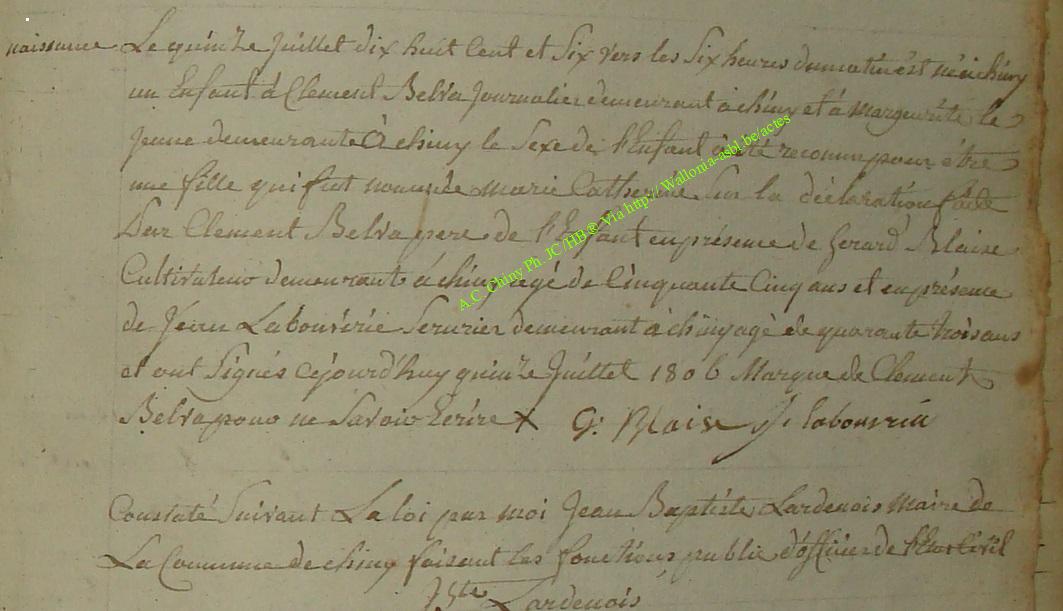 naissance Le quinze Juillet dix huit Cent et Six vers les Six heures du matin est né à chiny
un Enfant à Clement Belva Journalier demeurant à chiny et à margeurite le
Jeune demeurante à chiny le Sexe de l'Enfant à été reconnu pour être
une fille qui fut nommée marie Catherine Sur la déclaration faite
Par Clement Belva pere de l'Enfant en présence de Gerard Blaise
Cultivateur demeurant à chiny agé de Cinquante Cinq ans et en présence
de Jean Labouverie Serurier demeurant à chiny agé de quarante trois ans
et ont Signés cejourd'huy quinze Juillet 1806 Marque de Clement
Belva pour ne Savoir Ecrire X G: Blaise J. labouverie
Constaté Suivant La loi par moi Jean Baptiste Lardenois Maire de
La Commune de chiny faisant les fonctions public d'officier de l'Etat Civil
Lardenois
A.C. Chiny Ph. JC/HB® Via http://Wallonia-asbl.be/actes